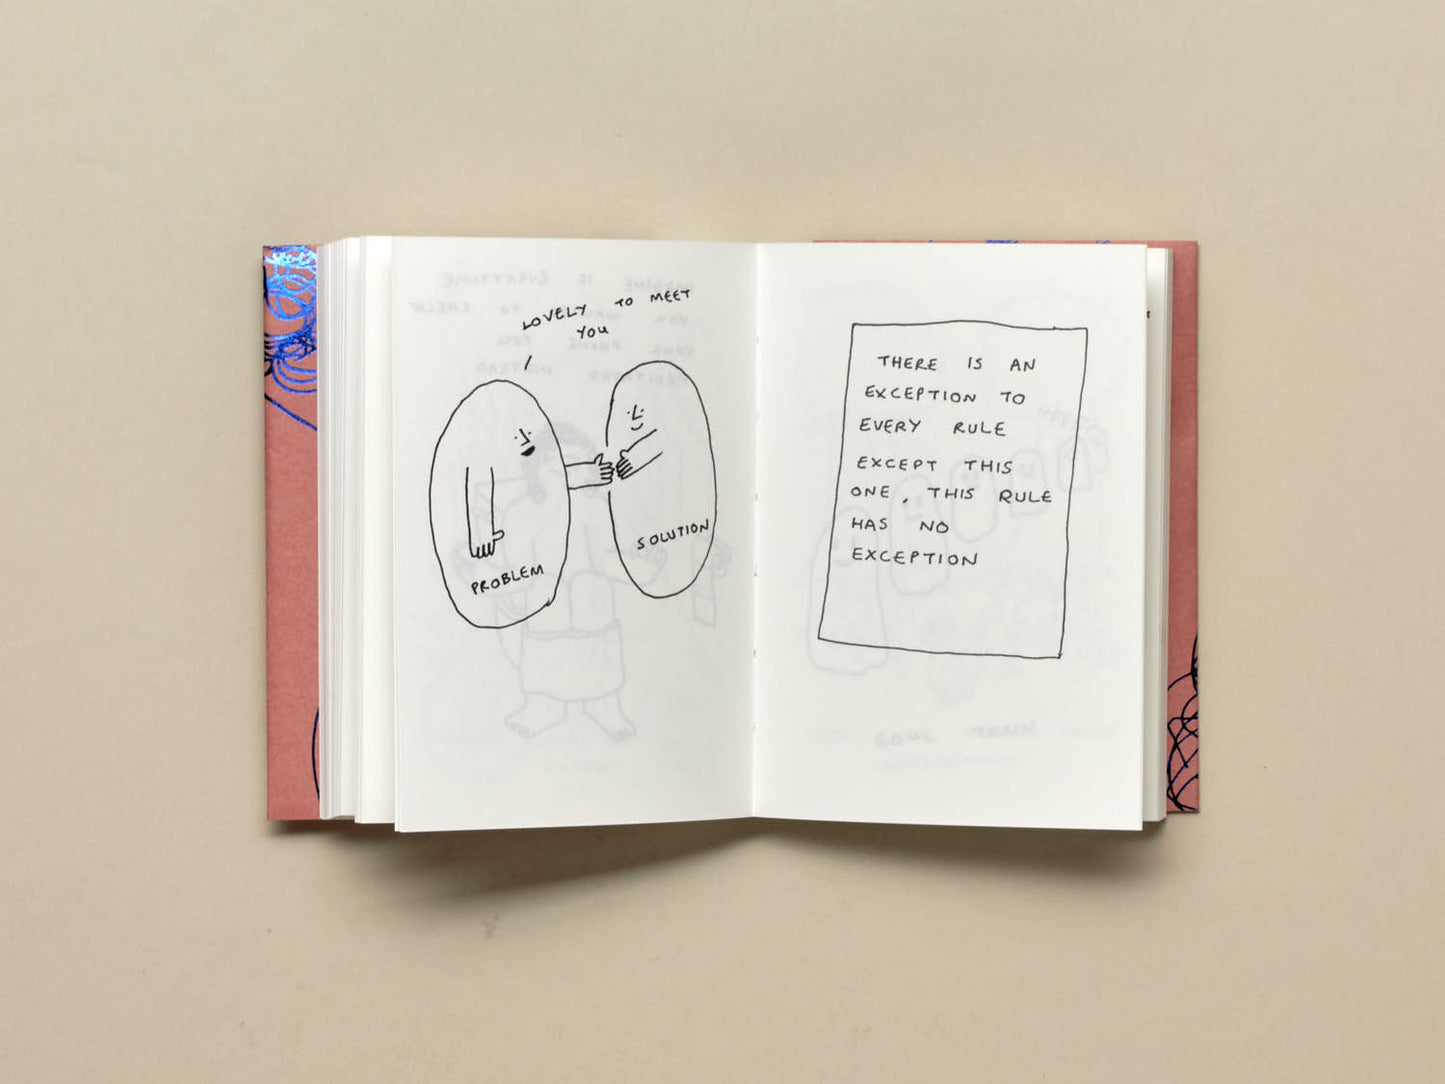 LOVELY TO MEET
YOU
PROBLEM
SOLUTION
THERE IS AN
EXCEPTION TO
EVERY RULE
EXCEPT THIS
ONE, THIS RULE
HAS NO
EXCEPTION